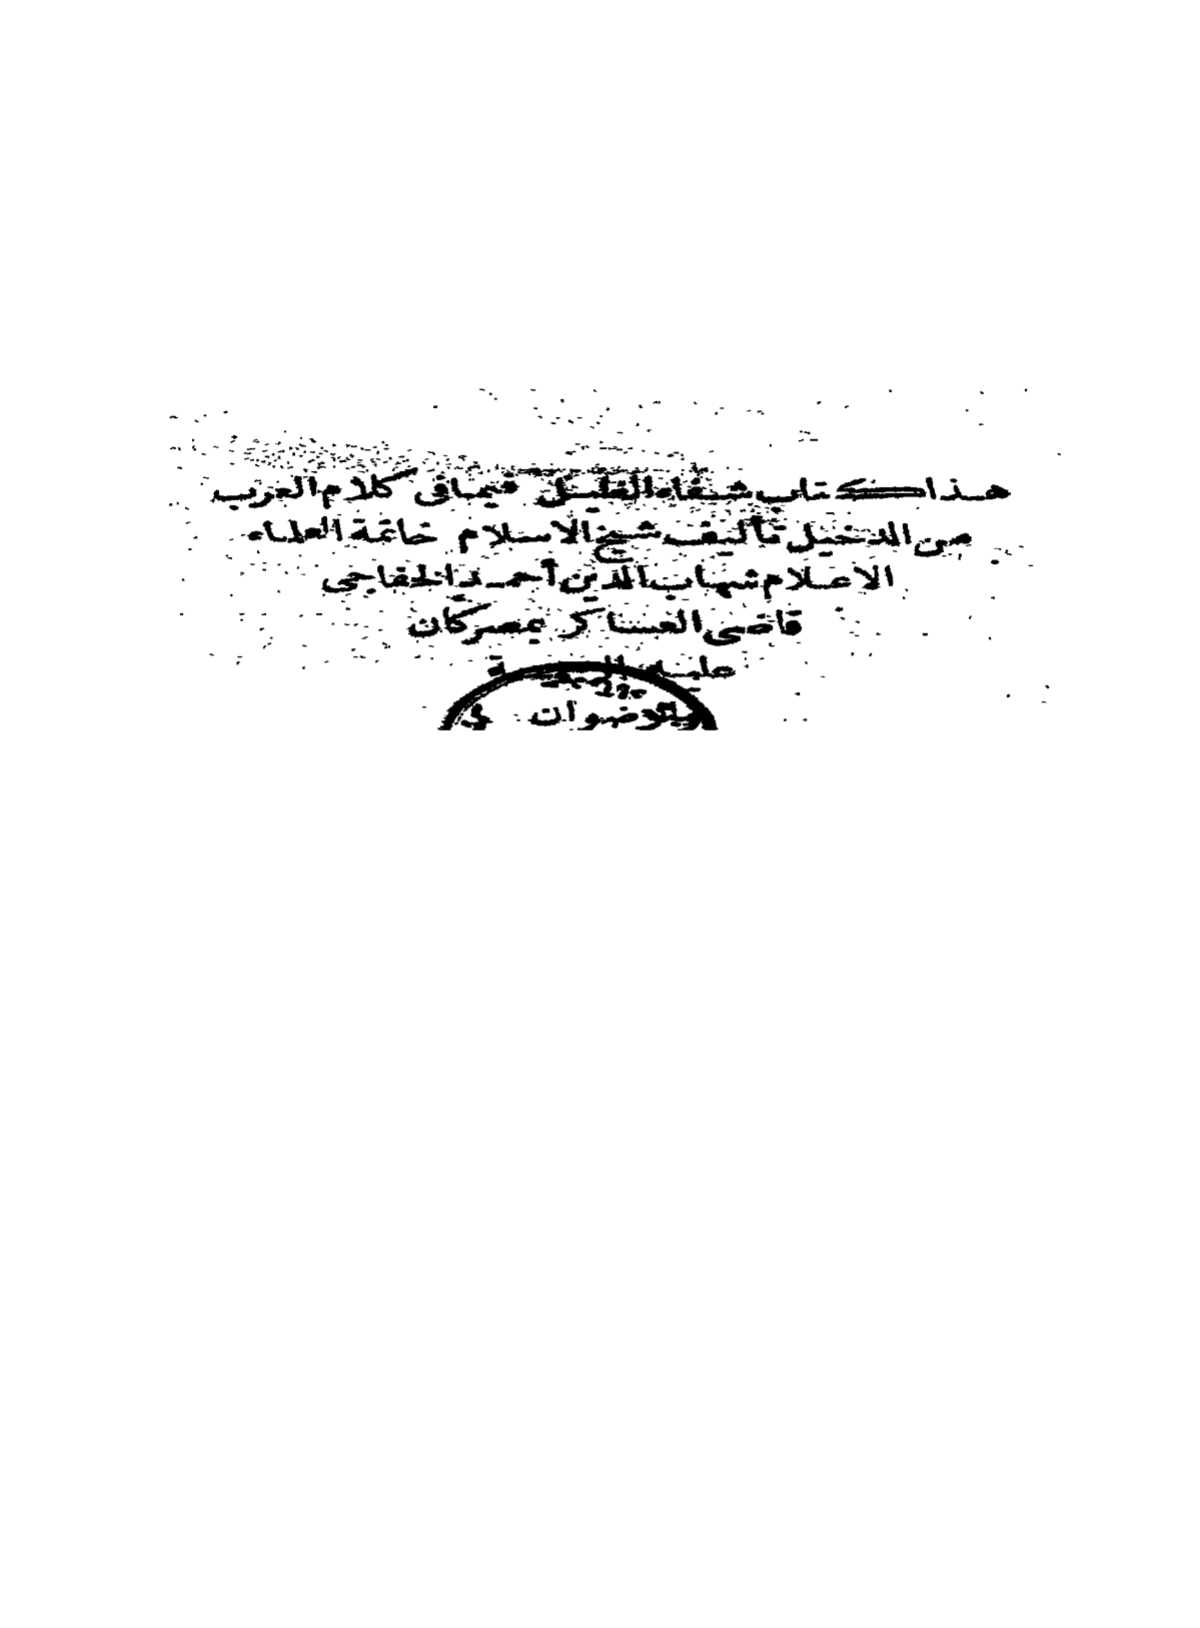 هذا كتاب شفاء الغليل فيما فى كلام العرب
من الدخيل تأليف شيخ الاسلام خاتمة العلماء
الاعلام شهاب الدين أحمد الخفاجى
قاضى العساكر بمصر كان
عليه